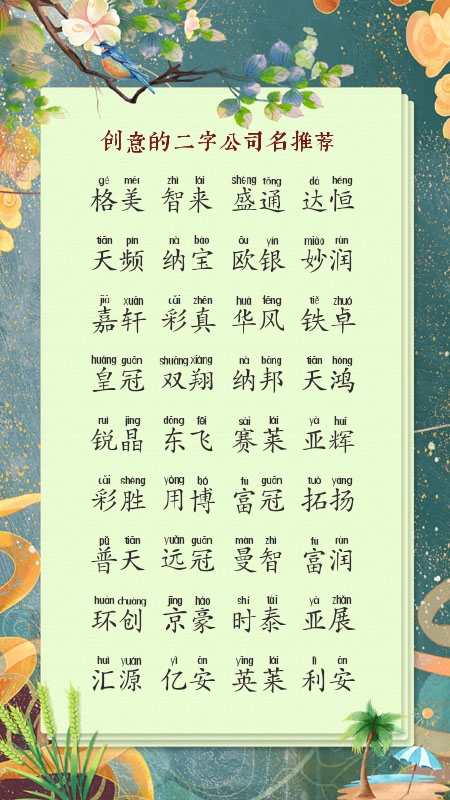 创意的二字公司名推荐
gé měi zhì lái shèng tōng dá héng
格美 智来 盛通 达恒
tiān pín nà bǎo ōu yín miào rùn
天频 纳宝 欧银 妙润
jiā xuān cǎi zhēn huá fēng tiě zhuó
嘉轩 彩真 华风 铁卓
huáng guān shuāng xiáng nà bāng tiān hóng
皇冠 双翔 纳邦 天鸿
ruì jīng dōng fēi sài lái yà huī
锐晶 东飞 赛莱 亚辉
cǎi shèng yòng bó fù guān tuò yáng
彩胜 用博 富冠 拓扬
pǔ tiān yuǎn guān màn zhì fù rùn
普天 远冠 曼智 富润
huán chuàng jīng háo shí tài yà zhǎn
环创 京豪 时泰 亚展
huì yuán yì ān yīng lái lì ān
汇源 亿安 英莱 利安